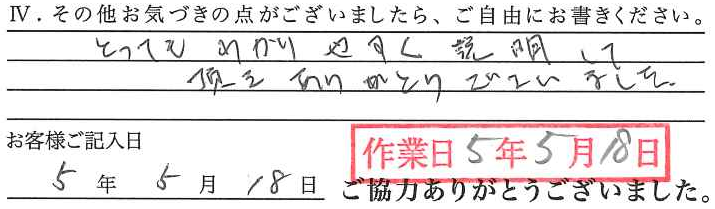 Ⅳ.その他お気づきの点がございましたら、ご自由にお書きください。
とってもわかりやすく説明して
頂きありがとうございました。
お客様ご記入日
作業日5年5月18日
5年5月18日
ご協力ありがとうございました。